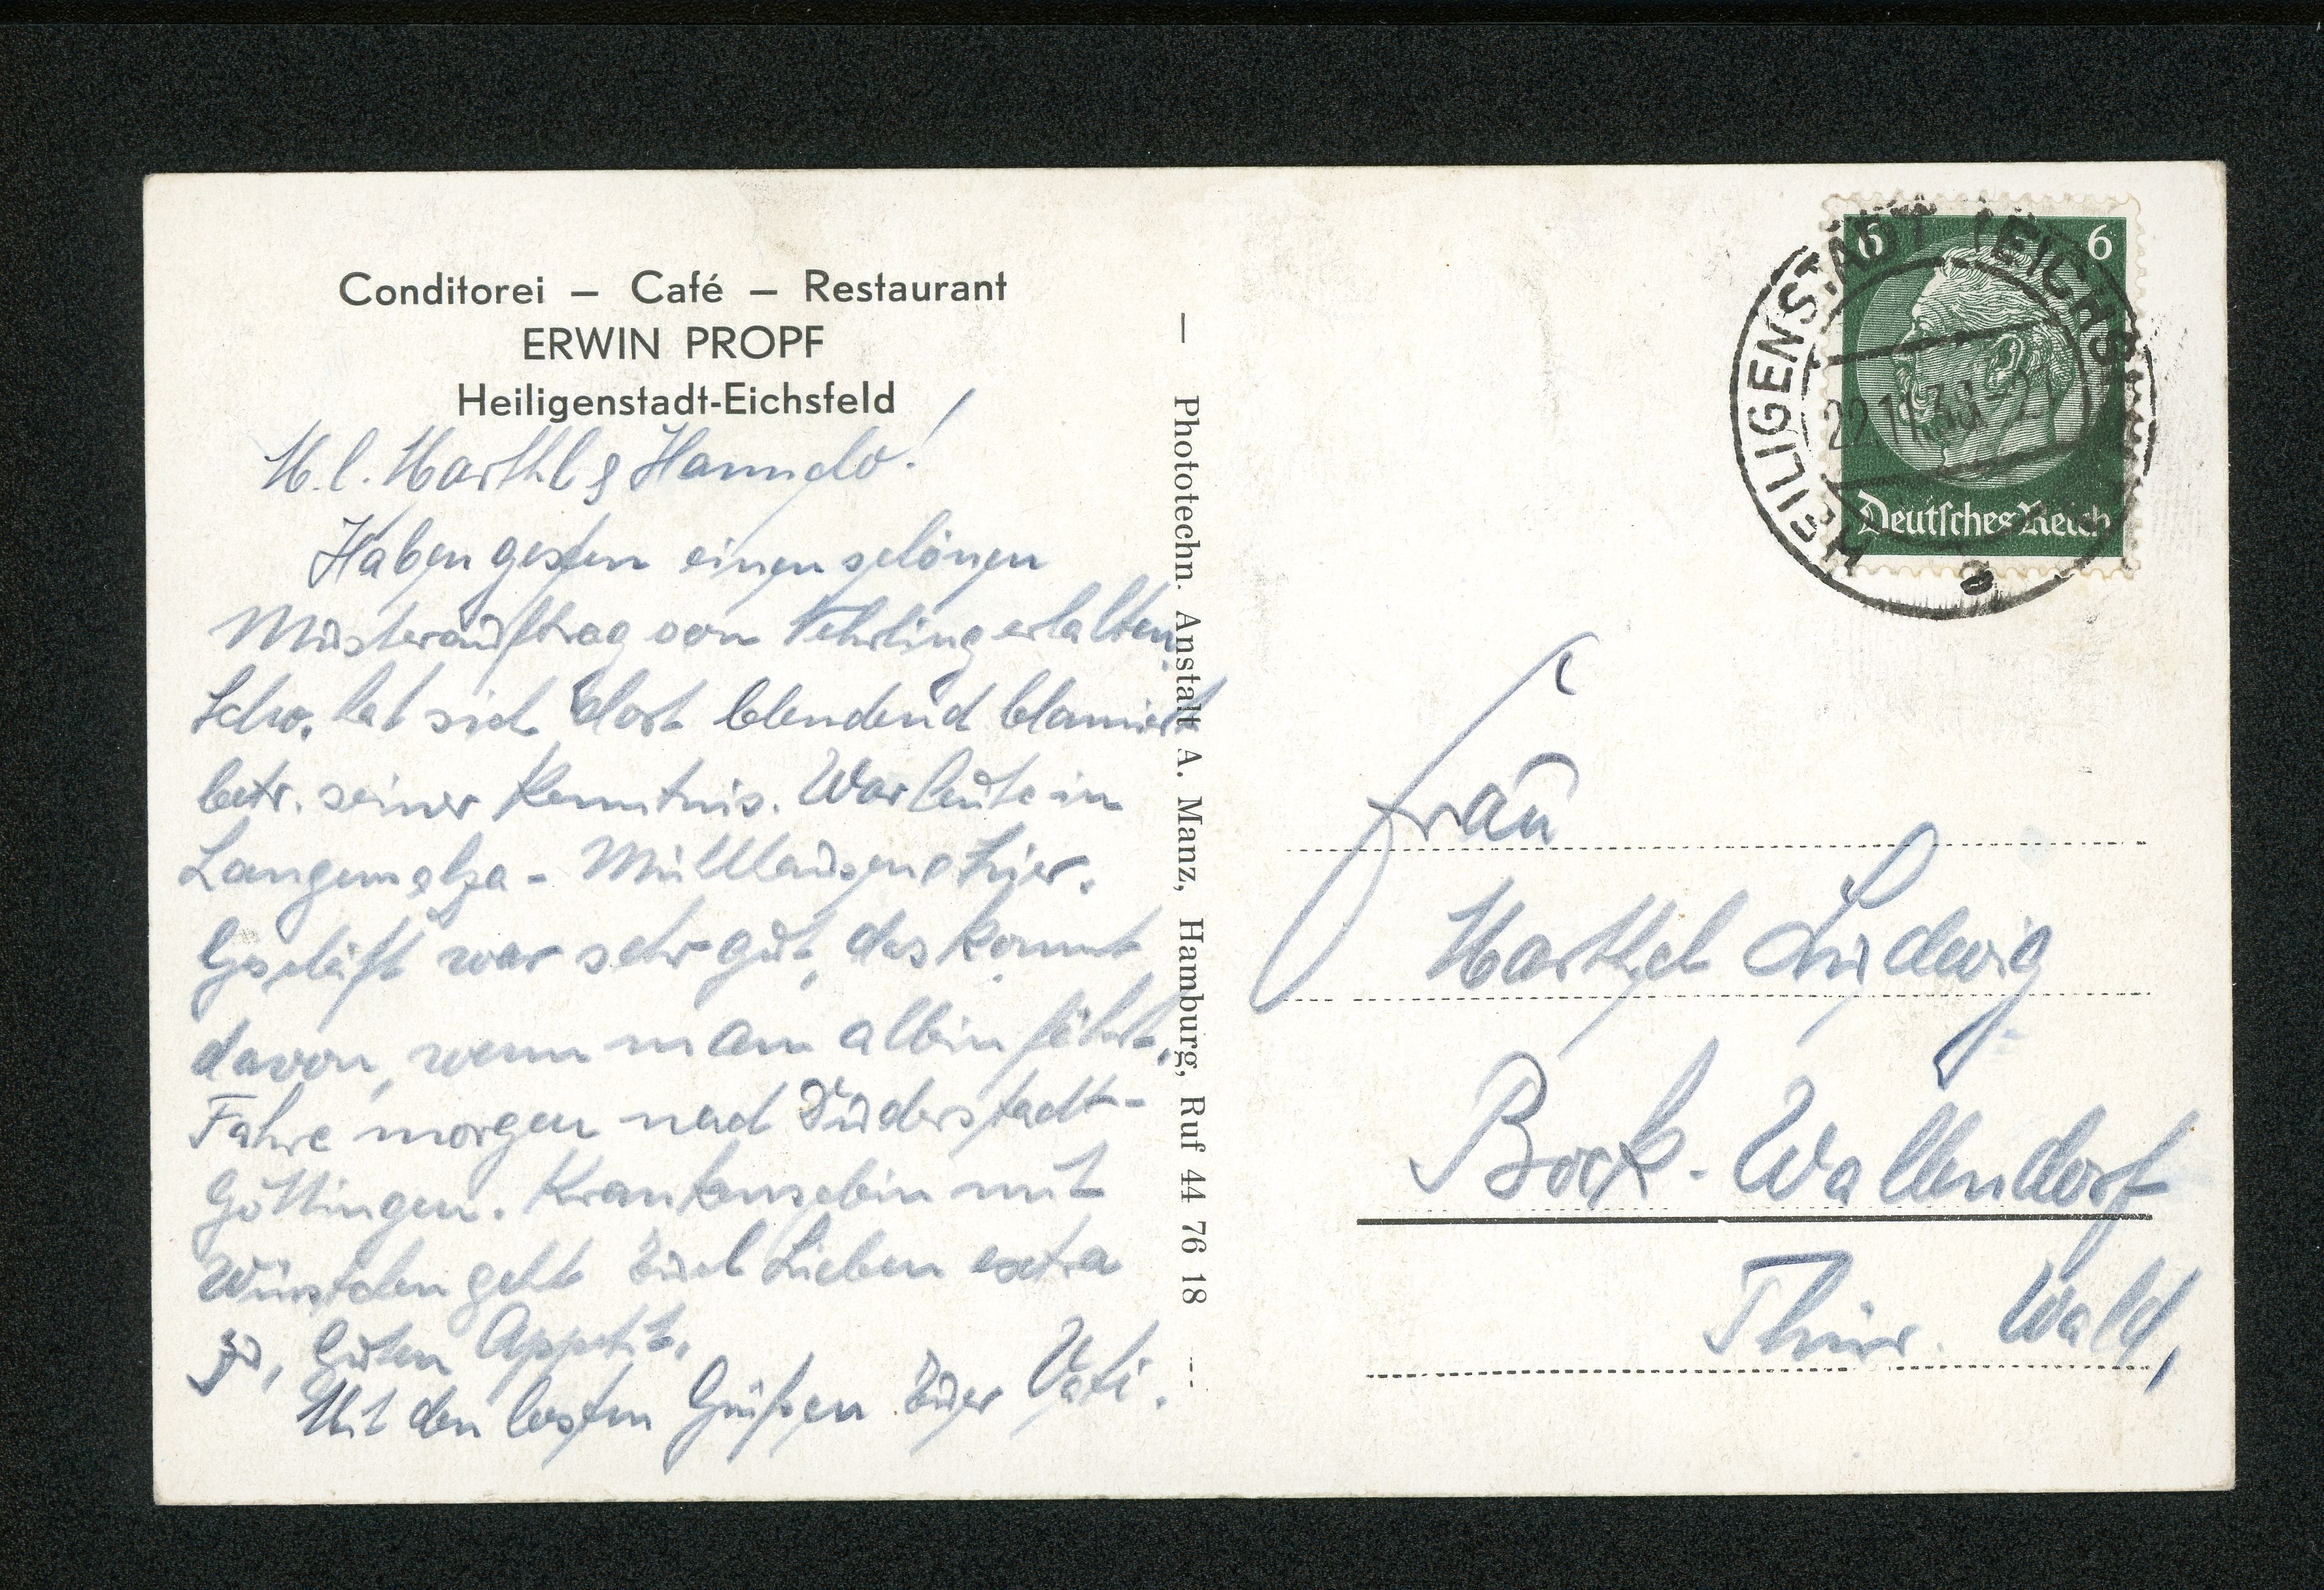 Conditorei – Café – Restaurant
ERWIN PROPF
Heiligenstadt-Eichsfeld
M. l. Marthl & Hannelo!
Haben gestern einen schönen
Musterauftrag von erhalten.
Scho. hat sich dort blendend blamiert
betr. seiner Kenntnis. War heute in
Langensalza - Mühlhausen & hier.
Geschäft war sehr gut, das kommt
davon, wenn man allein fährt.
Fahre morgen nach Duderstadt-
Göttingen. mit
Würstchen geht Euch Lieben extra
zu, Guten Appetit.
Mit den besten Grüßen Euer Vati.
— Phototechn. Anstalt A. Manz, Hamburg, Ruf 44 76 18 —
HEILIGENSTADT (EICHSF
22.11.38-21
6 6
Deutsches Reich
Frau
Marthel Ludwig
Bock-Wallendorf
Thür. Wald,